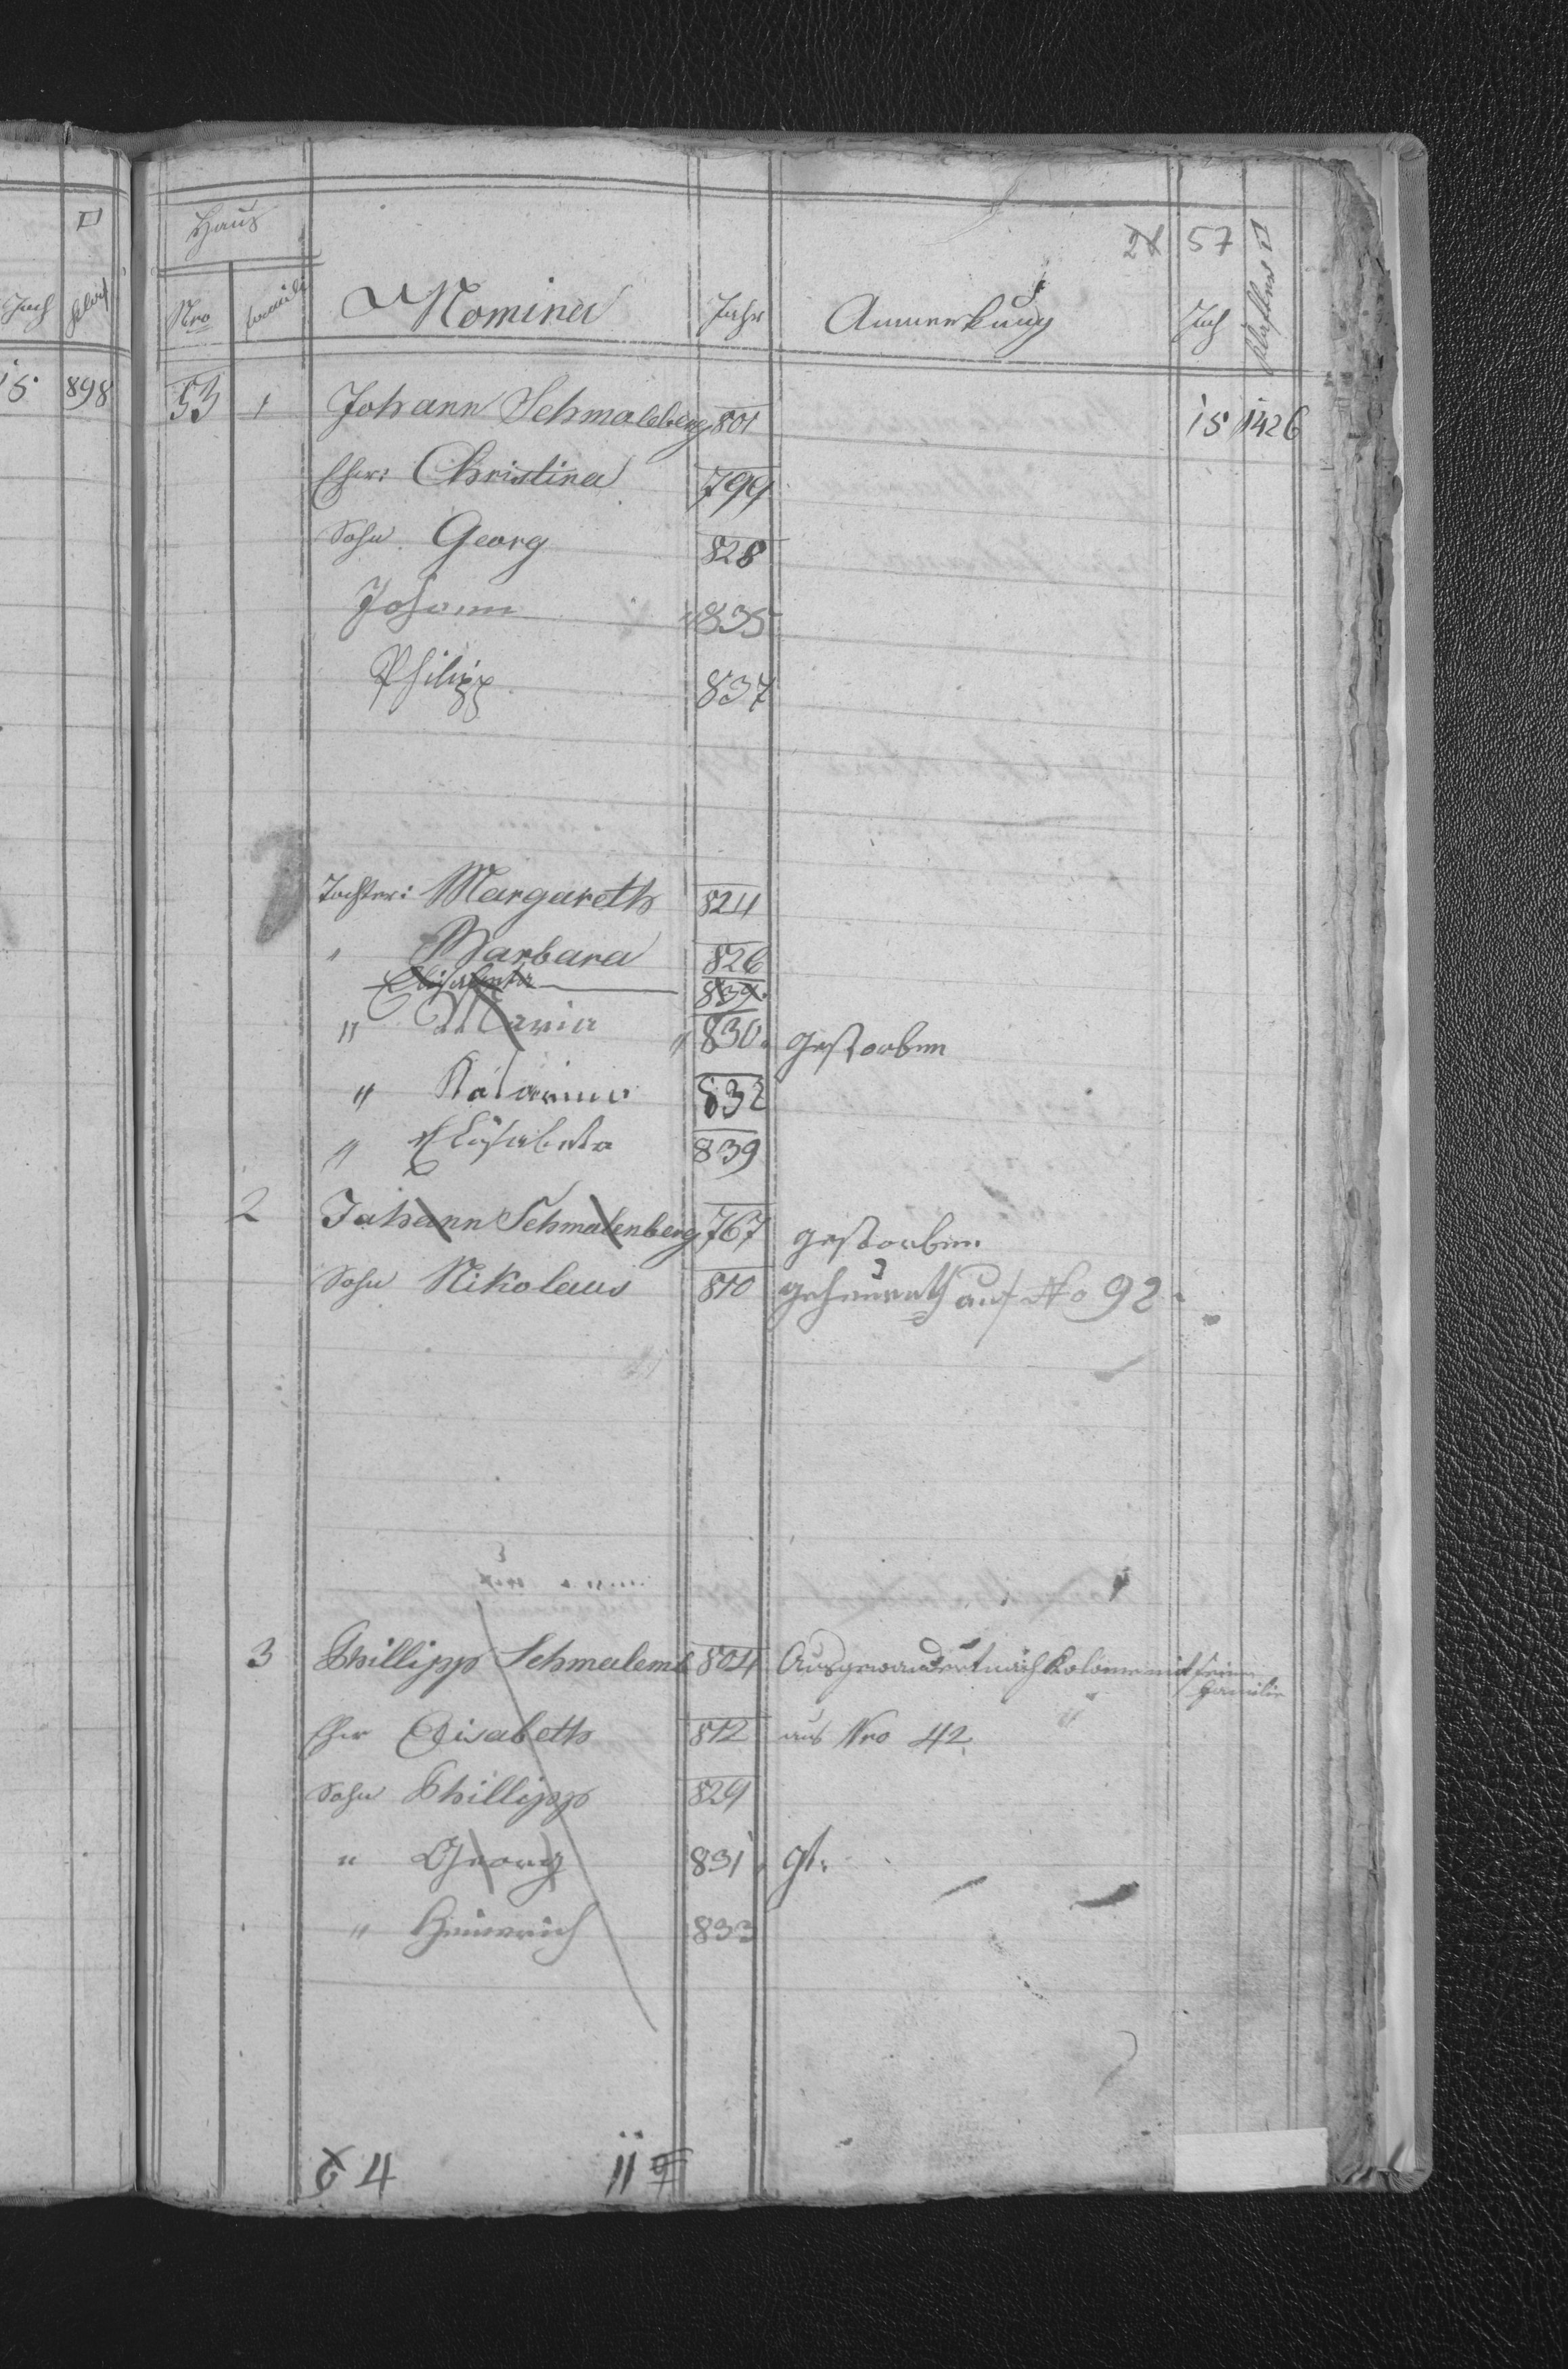 □
Joch
15 898
Haus
24 57
Nro Familie Nomina Jahr Anmerkung Joch Klafter □
53 1 Johann Schmaleberg 801 15 1426
Ehw: Christina 799
Sohn Georg 828
Johann 835
Philipp 837
Tochter: Margareth 824
" Barbara 826
Elisabetha 839.
" Maria 830. gestorben
" Katarina 832
" Elisabetha 839
2 Johann Schmalenberg 767 gestorben
Sohn Nikolaus 810 geheurath auf No 92
3 Phillipp Schmalemb 804 Ausgewandert nach Kolome mit seine
Familie
Ehw Elisabeth 812 aus Nro 42
Sohn Phillipp 829
" Georg 831 gt.
" Heinrich 833
6 4 11